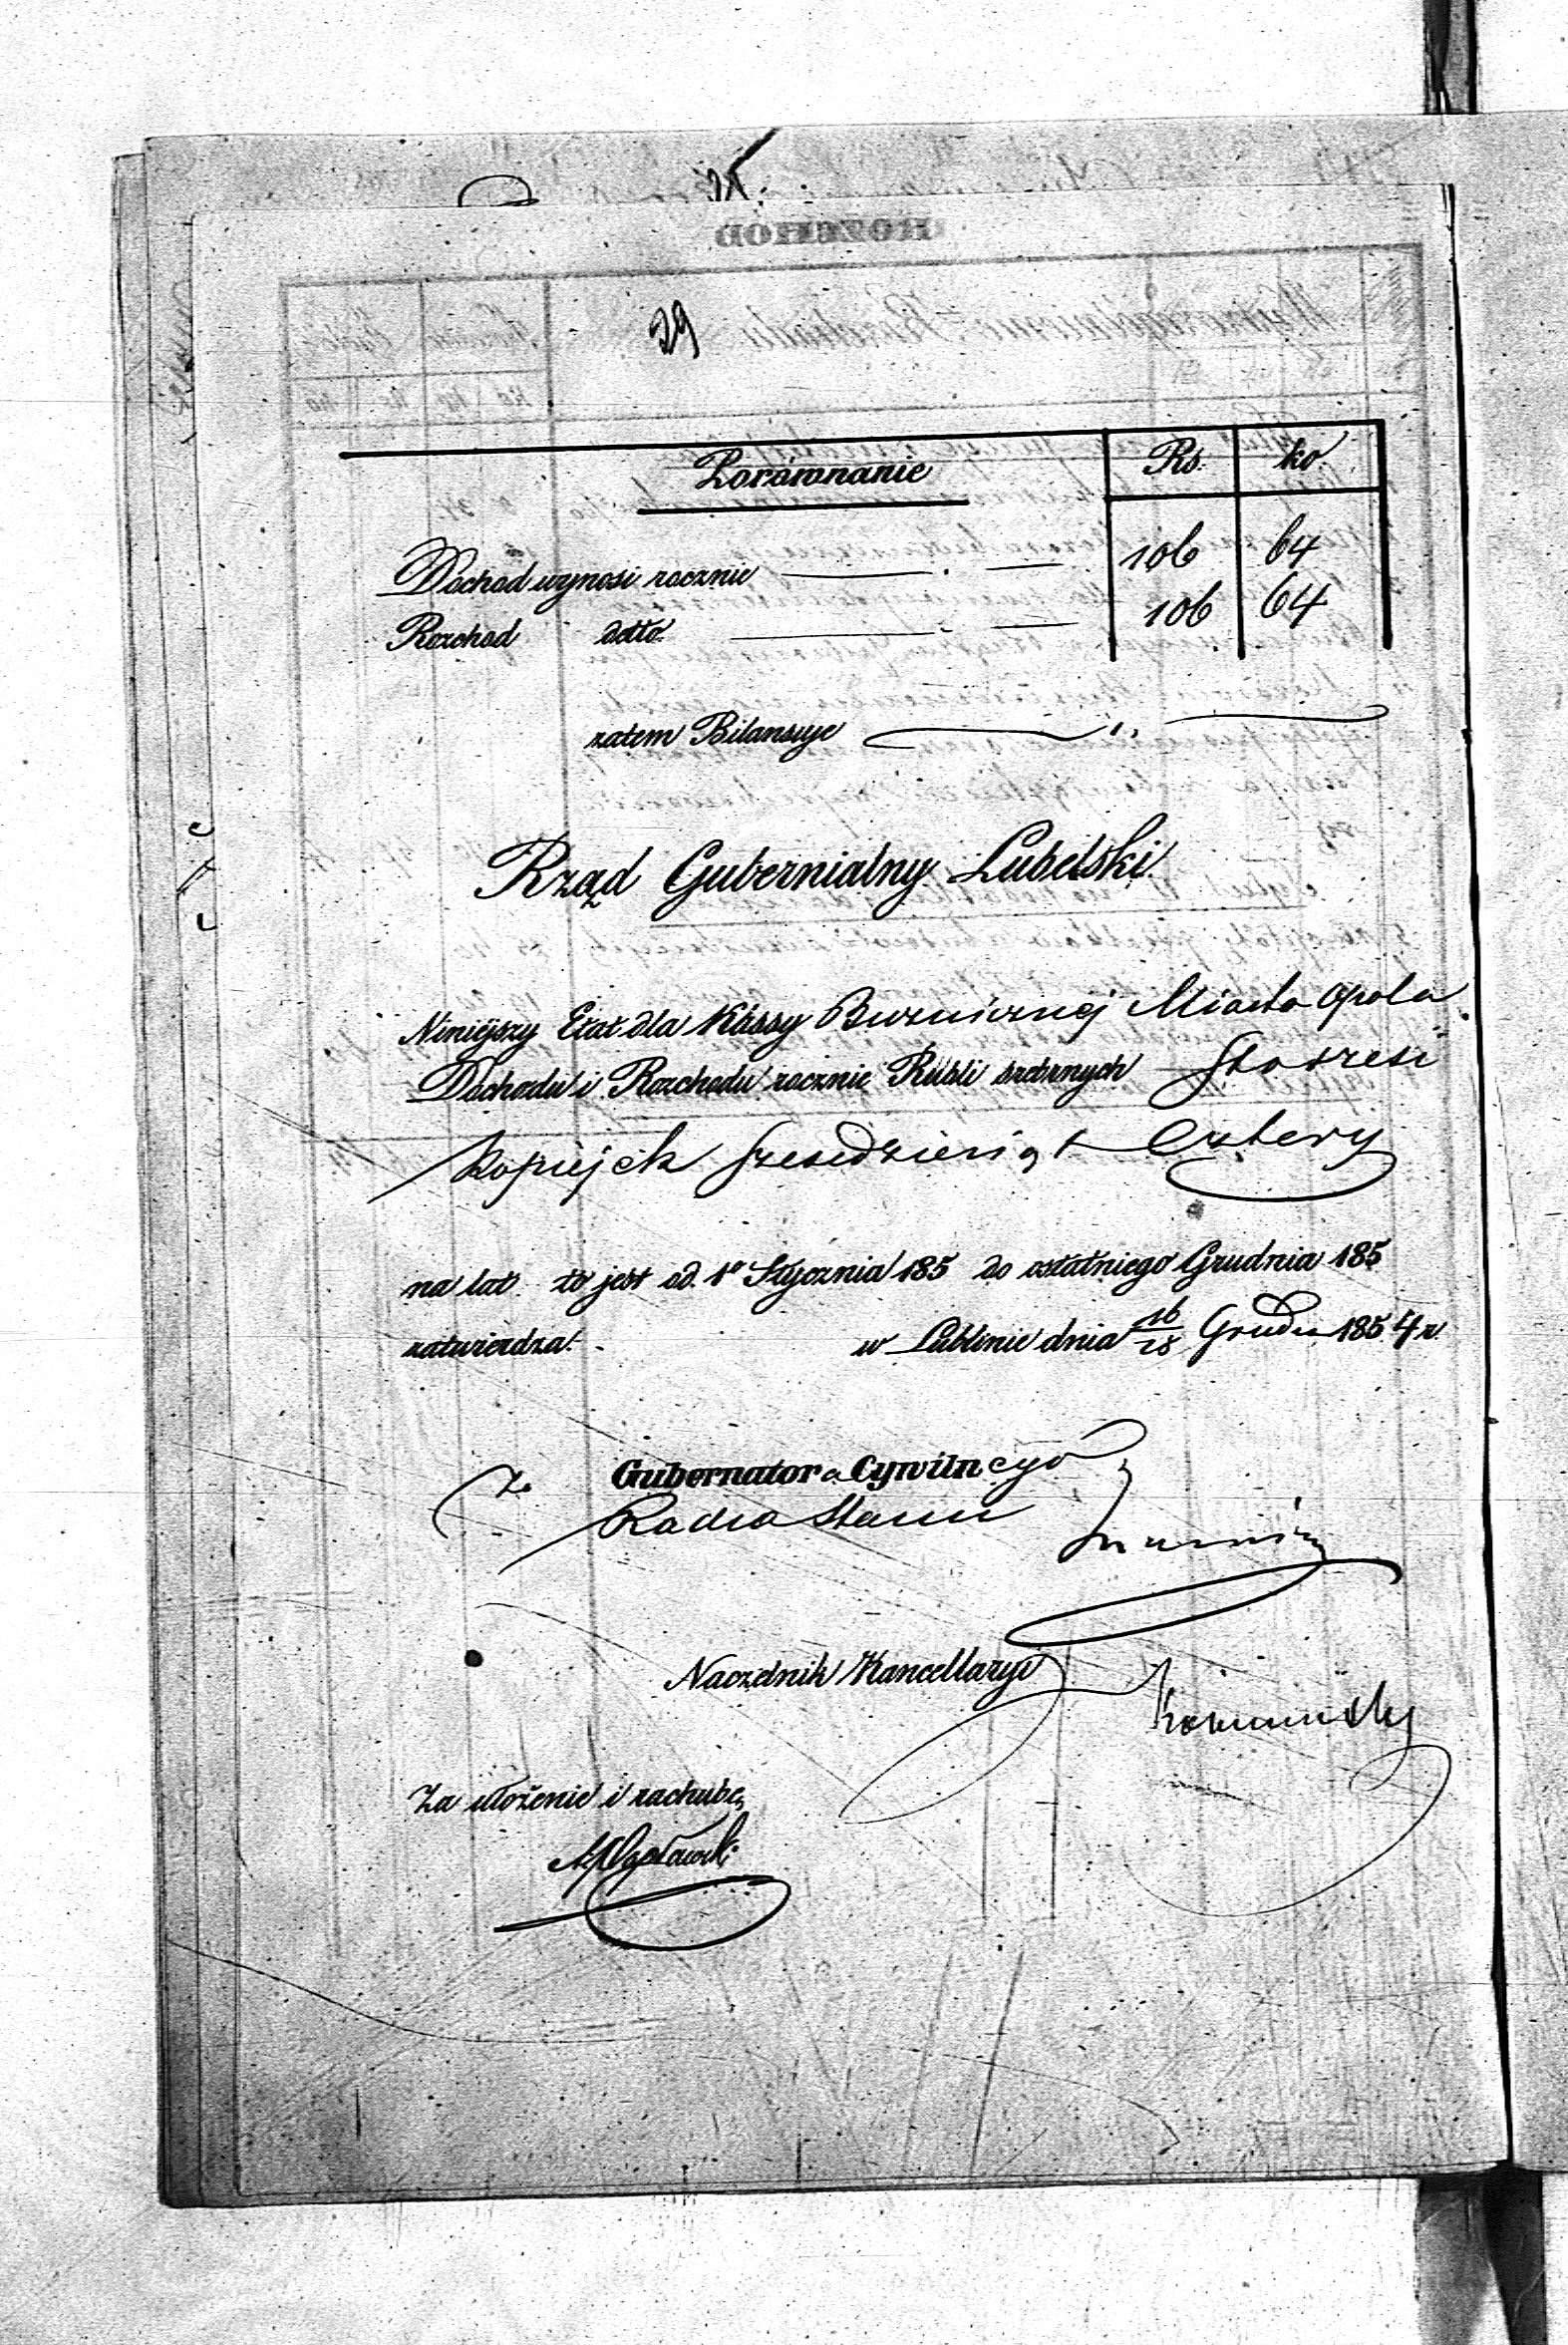 29
Porównanie Rs. ko.
Dochod wynosi rocznie 106 64
Rozchod detto 106 64
zatem Bilansuje
Rząd Gubernialny Lubelski.
Niniejszy Etat dla Kassy Bużnicznej Miasta Opola
Dochodu i Rozchodu rocznie Rubli srebrnych Sto sześć
Kopiejek sześćdziesiąt Cztery
na lat to jest od 1o Stycznia 185 do ostatniego Grudnia 185
zatwierdza. w Lublinie dnia 16/28 Grudnia 1854 r.
Za Gubernatora Cywilnego
Radca Stanu
Naczelnik Kancellaryi
Za ułożenie i rachubę